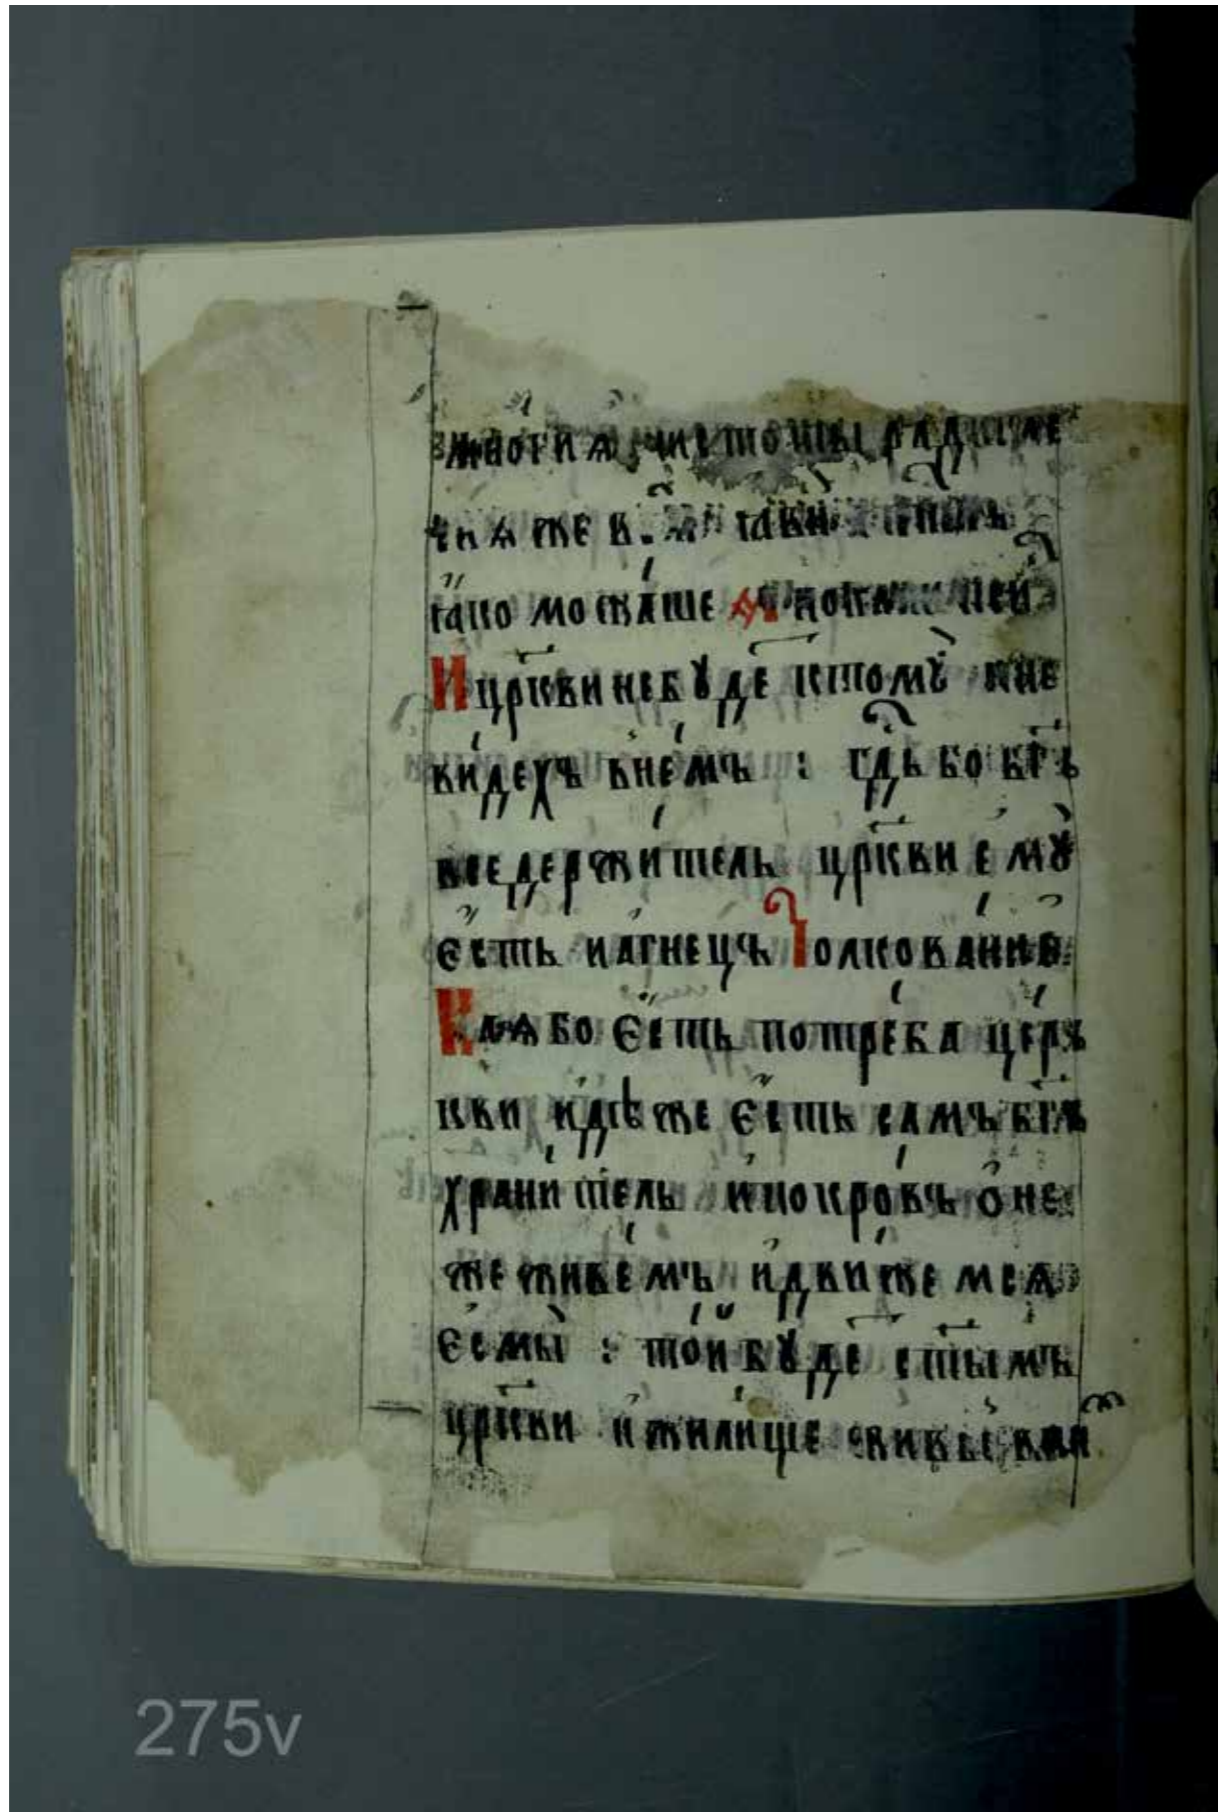 многиа чистоты ради
ꙗко можаше
И цркви не бꙋде ктомꙋ не
видехъ внемъ : гдь бо бгъ
вседержитель цркви емꙋ
єсть и агнецъ Толкование
Каѧ бо єсть потреба церъ
кви идѣже єсть самъ бгъ
хранитель и покровъ о не
же живемъ и движемсѧ
єсмы : той бꙋде стымъ
цркви и жилище
275v